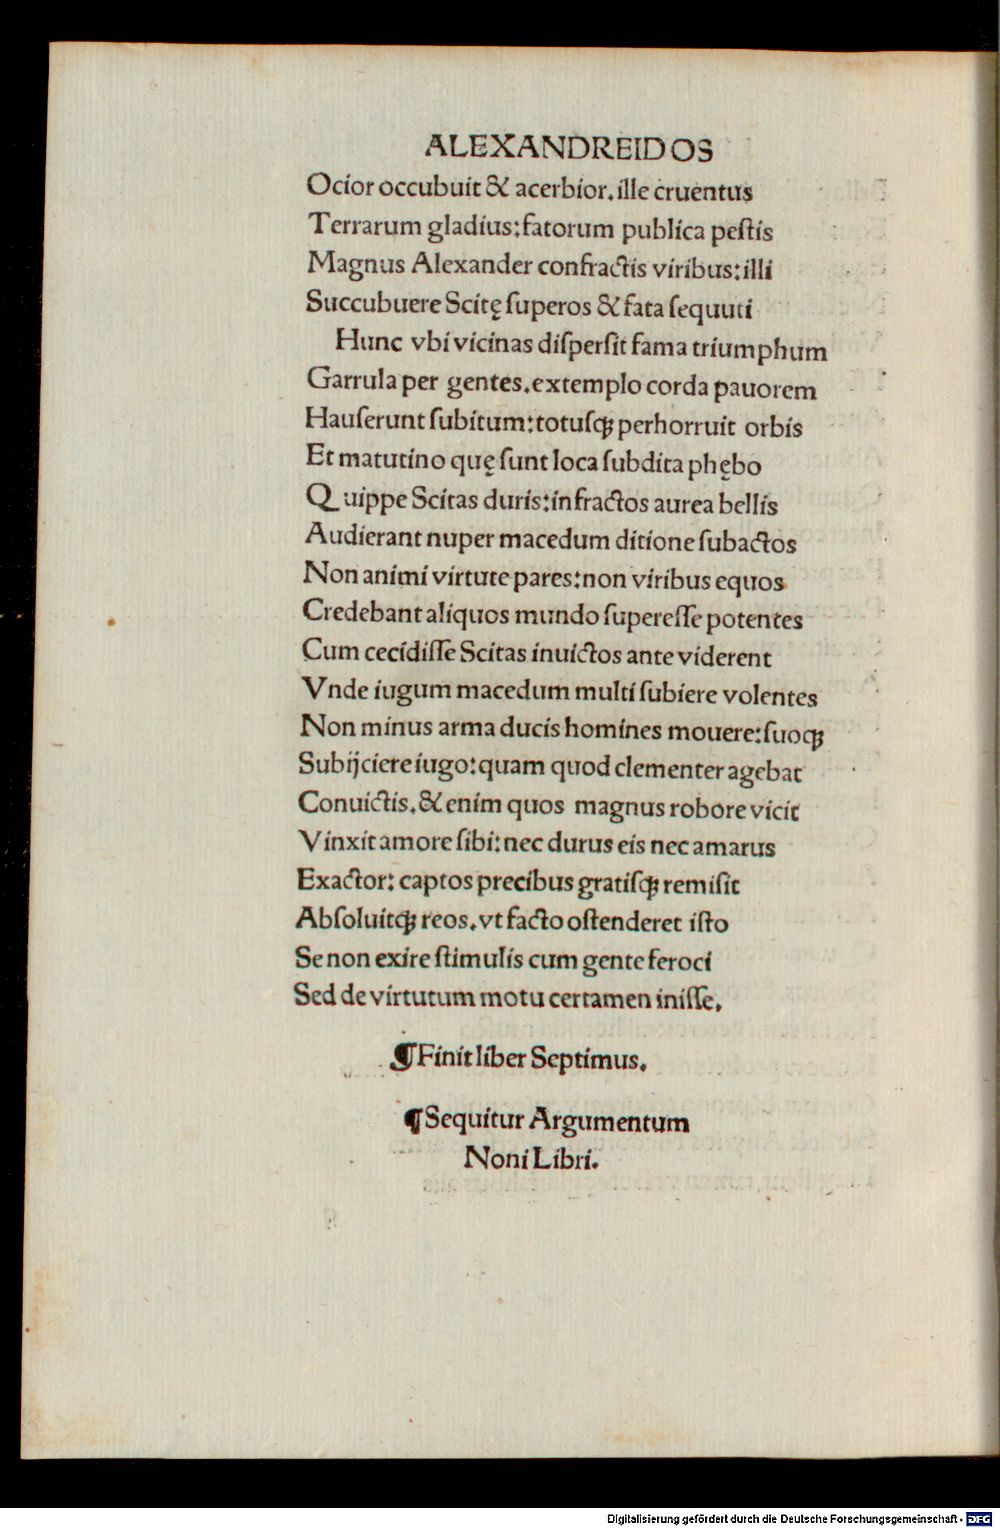 ALEXANDREIDOS
Ocior occubuit & acerbior. ille cruentus
Terrarum gladius: fatorum publica peſtis
Magnus Alexander confractis viribus: illi
Succubuere Scitę ſuperos & fata ſequuti
Hunc vbi vicinas diſperſit fama triumphum
Garrula per gentes. extemplo corda pauorem
Hauſerunt ſubitum: totuſqꝫ perhorruit orbis
Et matutino quę ſunt loca ſubdita phębo
Quippe Scitas duris: infractos aurea bellis
Audierant nuper macedum ditione ſubactos
Non animi virtute pares: non viribus equos
Credebant aliquos mundo ſupereſſe potentes
Cum cecidiſſe Scitas inuictos ante viderent
Vnde iugum macedum multi ſubiere volentes
Non minus arma ducis homines mouere: ſuoqꝫ
Subijciere iugo: quam quod clementer agebat
Conuictis. & enim quos magnus robore vicit
Vinxit amore ſibi: nec durus eis nec amarus
Exactor: captos precibus gratiſqꝫ remiſit
Abſoluitqꝫ reos. vt facto oſtenderet iſto
Se non exire ſtimulis cum gente feroci
Sed de virtutum motu certamen iniſſe.
¶Finit liber Septimus.
¶Sequitur Argumentum
Noni Libri.
Digitalisierung gefördert durch die Deutsche Forschungsgemeinschaft - DFG